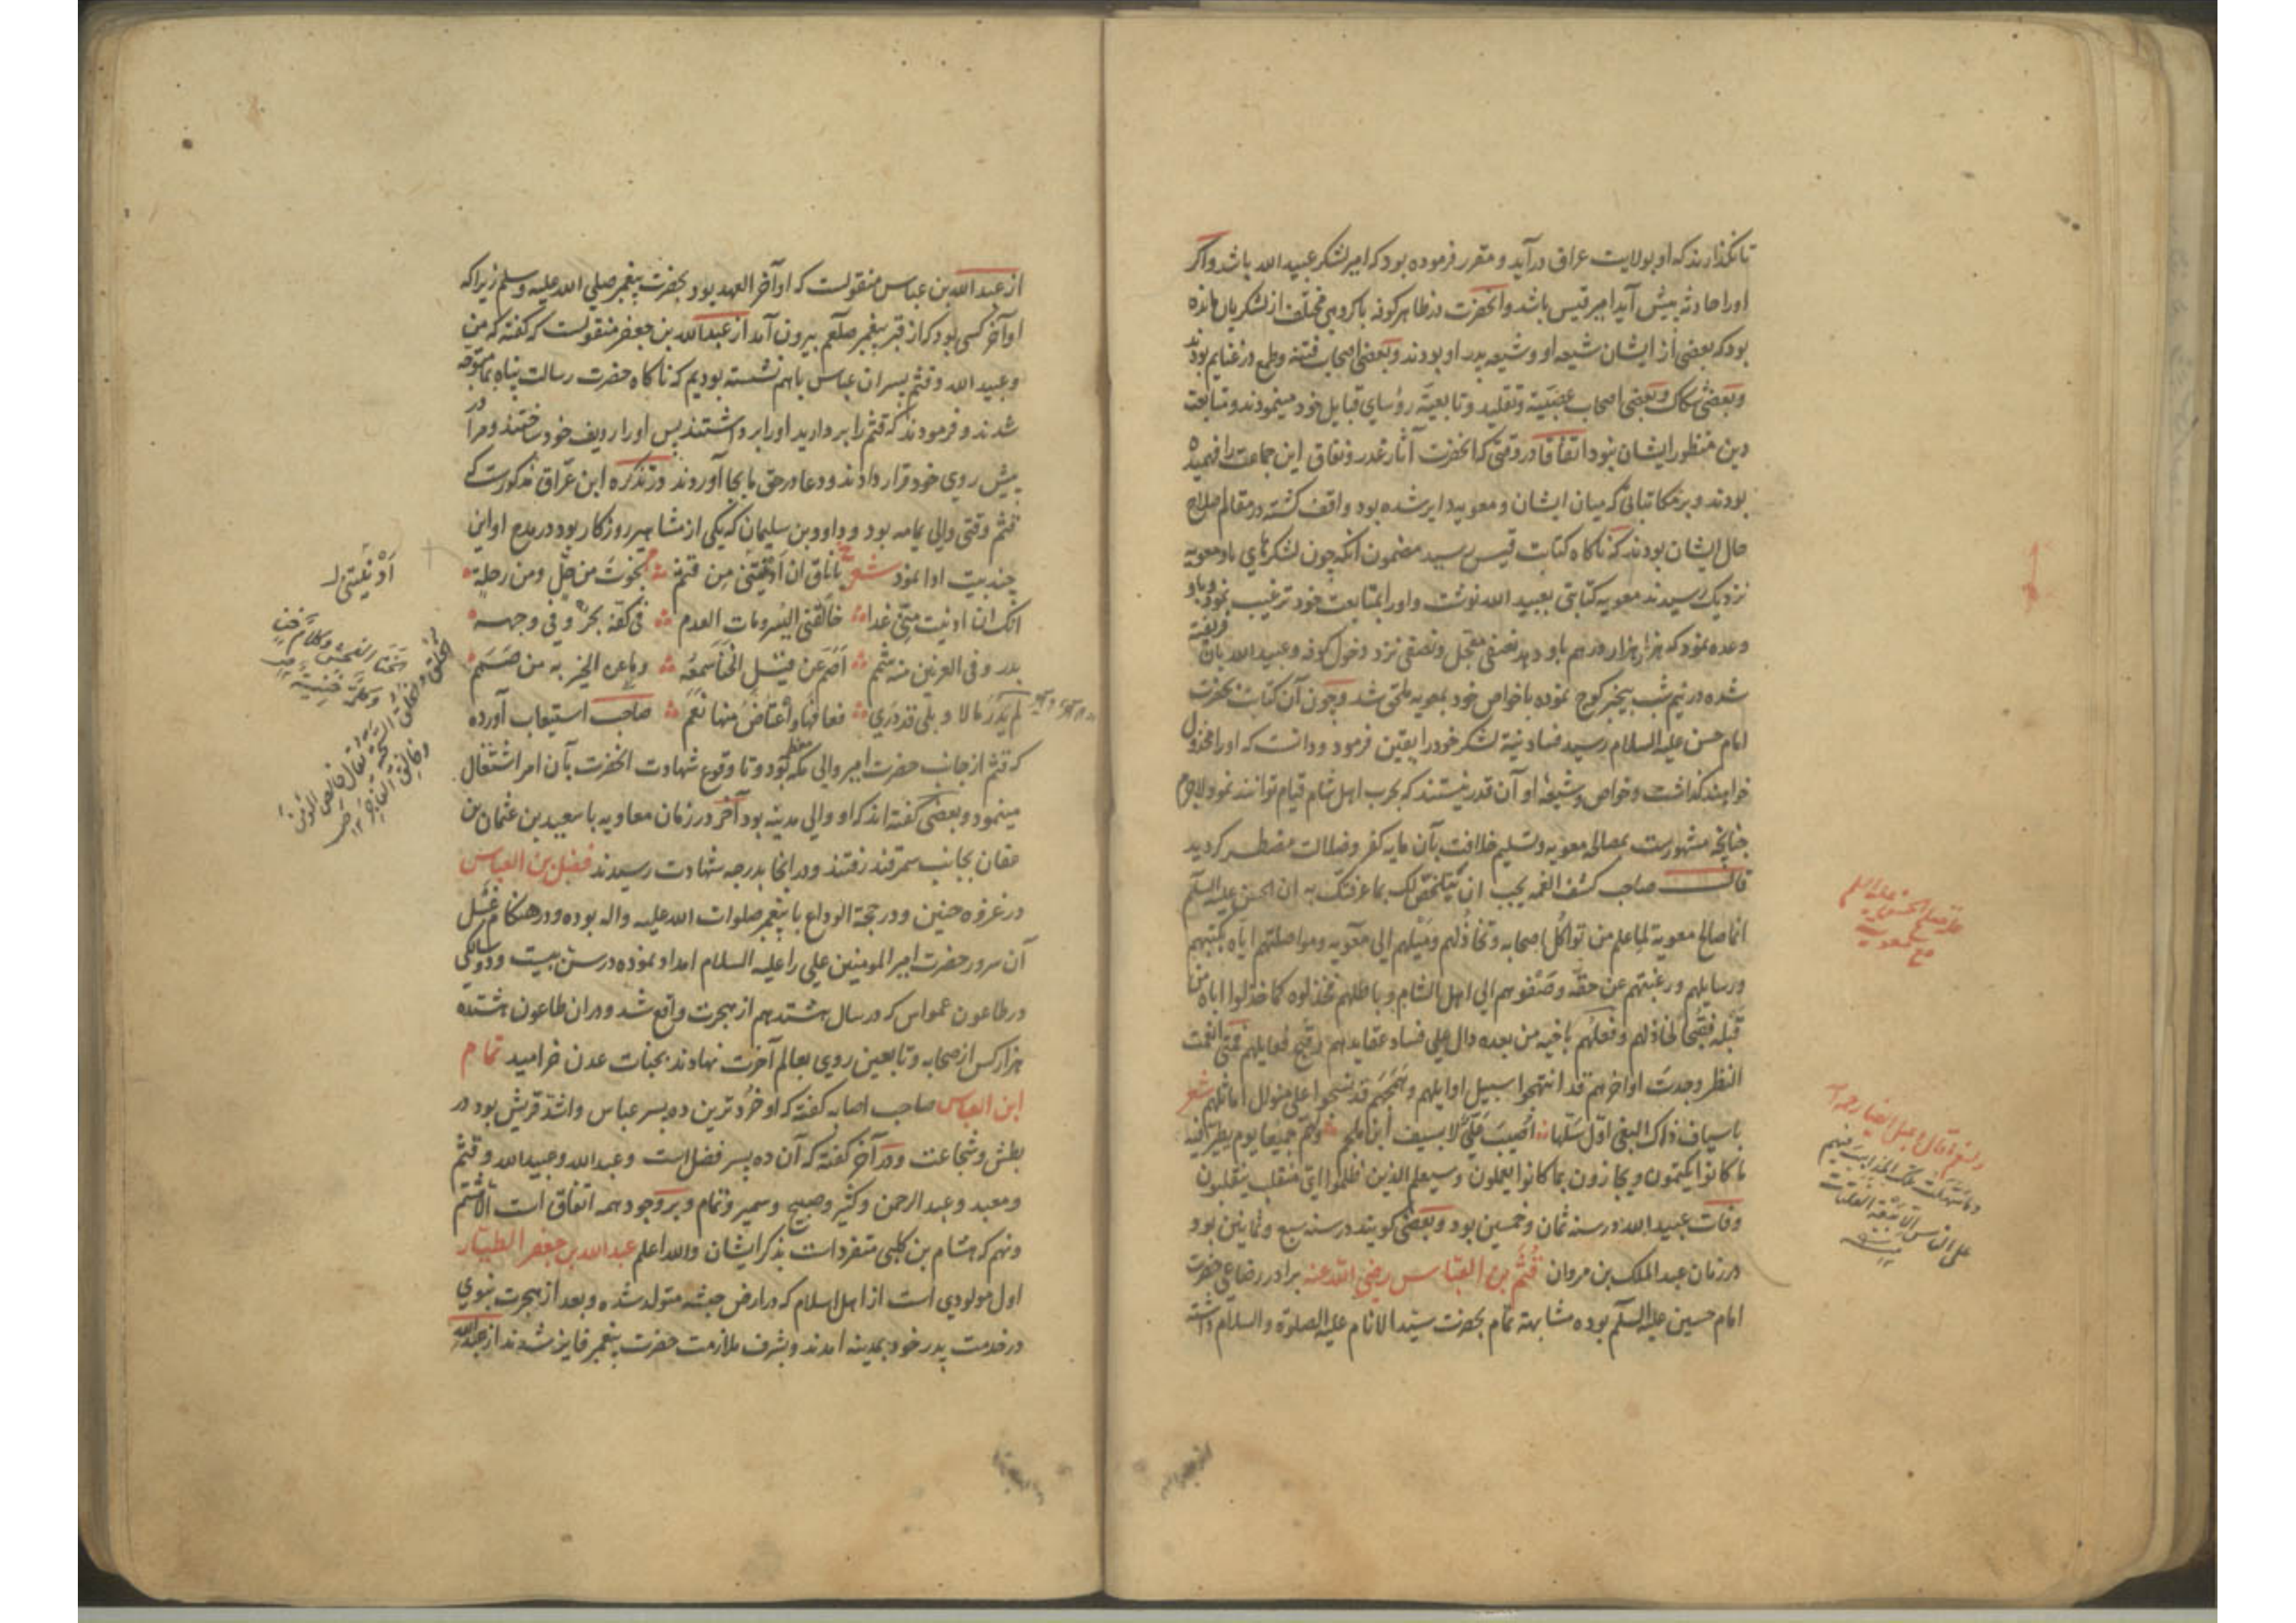 تا نکذارند که او بولایت عراق درآید و مقرر فرموده بود که امیر لشکر عبید الله باشد و اکر
اورا حادثه پیش آید امیر قیس باشد و آنحضرت در ظاهر کوفه با کروهی مختلف از لشکریان مانده
بود که بعضی از ایشان شیعه او و شیعه پدر او بودند و بعضی اصحاب فتنه و طمع در غنایم بودند
و بعضی شکاک و بعضی اصحاب عصبیة و تقلید و تابعیة رؤسای قبایل خود مینمودند و متابعت
دین منظور ایشان نبود اتفاقا در وقتی که آنحضرت آثار غدر و نفاق این جماعت را فهمیده
بودند و بر مکاتباتی که میان ایشان و معویه دایر شده بود واقف کشته در مقام اصلاح
حال ایشان بودند که ناکاه کتابت قیس رسید مضمون آنکه چون لشکرهای ما و معویه
نزدیک رسیدند معویه کتابتی بعبید الله نوشت و اورا بمتابعت خود ترغیب نمود و باو
وعده نمود که هزار هزار درهم باو دهد نصفی معجل و نصفی نزد دخول کوفه و عبید الله بآن فریفته
شده در نیم شب بیخبر کوچ نموده با خواص خود بمعویه ملحق شد و چون آن کتابت بحضرت
امام حسن علیه السلام رسید فساد نیة لشکر خود را یقین فرمود و دانست که اورا مخذول
خواهند کذاشت و خواص و شیعهٔ او آن قدر نیستند که بحرب اهل شام قیام توانند نمود لاجرم
چنانچه مشهورست بمصالحه معویه و تسلیم خلافت بآن مایه کفر و ضلالت مضطر کردید
قال صاحب کشف الغمه یجب ان یتلخص لک بما عرفتک به ان الحسن علیه السلام
انما صالح معویة لما علم من تواکل اصحابه و تخاذلهم و میلهم الی معویه و مواصلتهم ایاه بکتبهم
و رسایلهم و رغبتهم عن حقه و صغوهم الی اهل الشام و باطلهم فخذلوه کما خذلوا اباه من
قبله فقبحا لتخاذلهم و فعلهم باخیه من بعده دال علی فساد عقایدهم و قبح فعایلهم فمتی انعمت
النظر وجدت اواخرهم قد انتهجوا سبیل اوایلهم و همجهم قد نسجوا علی منوال اماثلهم شعر
یا سیاف ذاک البغی اول سلها اصیب علی لا بسیف ابن ملجم و لهم جمیعا یوم یظهر فیه
ما کانوا یکتمون و یجازون بما کانوا یعملون و سیعلم الذین ظلموا ای منقلب ینقلبون
وفات عبید الله در سنه ثمان و خمسین بود و بعضی کویند در سنه سبع و ثمانین بود
در زمان عبد الملک بن مروان قثم بن العباس رضی الله عنه برادر رضاعی حضرت
امام حسین علیه السلام بوده مشابهة تمام بحضرت سید الانام علیه الصلوة و السلام داشته
از عبد الله بن عباس منقولست که او آخر العهد بود بحضرت پیغمبر صلی الله علیه و سلم زیرا که
او آخر کسی بود که از قبر پیغمبر صلعم بیرون آمد از عبد الله بن جعفر منقولست که کفته که من
و عبید الله و قثم پسران عباس باهم نشسته بودیم که ناکاه حضرت رسالت پناه بما متوجه
شدند و فرمودند که قثم را بردارید اورا برداشتند پس اورا ردیف خود ساختند و مرا در
پیش روی خود قرار دادند و دعا در حق ما بجا آوردند و در تذکره ابن عراق مذکورست که
قثم وقتی والی یمامه بود و داود بن سلیمان که یکی از مشاهیر روزکار بود در مدح او این
چند بیت ادا نمود شعر نجوت من حل و من رحلة یا ناق ان ادنیتنی من قثم
انک ان ادنیت منی غدا حالفنی الیسر و مات العدم فی کفه بحر و فی وجهه
بدر و فی العرنین منه شمم اصم عن قیل الخنا سمعه و ما عن الخیر به من صمم
لم یدر ما لا و بلی قد دری فعافها و اعتاض منها نعم صاحب استیعاب آورده
که قثم از جانب حضرت امیر والی مکه معظمه بود و تا وقوع شهادت آنحضرت بآن امر اشتغال
مینمود و بعضی کفته اند که او والی مدینه بود آخر در زمان معاویه با سعید بن عثمان بن
عفان بجانب سمرقند رفتند و در آنجا بدرجه شهادت رسیدند فضل بن العباس
در غزوه حنین و در حجة الوداع با پیغمبر صلوات الله علیه و اله بوده و در هنکام غسل
آن سرور حضرت امیر المومنین علی را علیه السلام امداد نموده در سن بیست و دو سالکی
در طاعون عمواس که در سال هشتدهم از هجرت واقع شد و در ان طاعون هشتده
هزار کس از صحابه و تابعین روی بعالم آخرت نهادند بجنات عدن خرامید تمام
ابن العباس صاحب اصابه کفته که او خردترین ده پسر عباس و اشد قریش بود در
بطش و شجاعت و در آخر کفته که آن ده پسر فضل است و عبد الله و عبید الله و قثم
و معبد و عبد الرحمن و کثیر و صبیح و سمیر و تمام و بر وجود همه اتفاق است الا هشتم
و نهم که هشام بن کلبی متفردست بذکر ایشان و الله اعلم عبد الله بن جعفر الطیار
اول مولودی است از اهل اسلام که در ارض حبشه متولد شده و بعد از هجرت نبوی
در خدمت پدر خود بمدینه آمدند و بشرف ملازمت حضرت پیغمبر فایز شدند از عبد الله